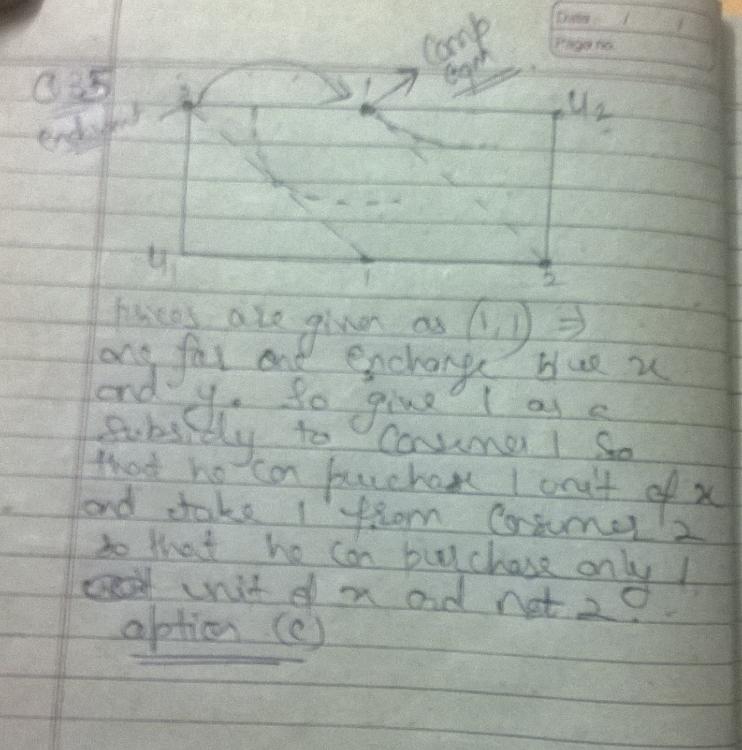 Date / /
Page no.
Comp
eqm
Q 35
endowment
1
U2
U1
1
2
Prices are given as (1,1) ⇒
one for one exchange b/w x
and y. So give 1 as a
subsidy to Consumer 1 so
that he can purchase 1 unit of x
and take 1 from Consumer 2
so that he can purchase only 1
unit of x and not 2.
option (c)